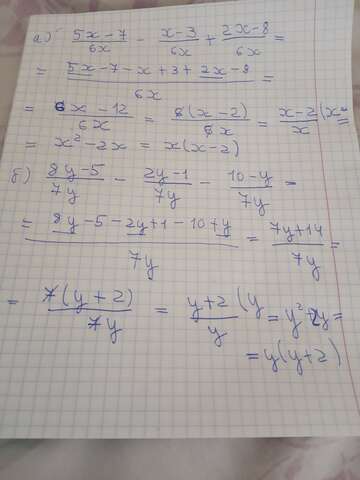 а) (5x-7)/6x - (x-3)/6x + (2x-8)/6x =
= (5x-7-x+3+2x-8)/6x =
= (6x-12)/6x = 6(x-2)/6x = (x-2)/x (x =
= x²-2x = x(x-2)
б) (8y-5)/7y - (2y-1)/7y - (10-y)/7y =
= (8y-5-2y+1-10+y)/7y = (7y+14)/7y =
= 7(y+2)/7y = (y+2)/y (y = y²+2y =
= y(y+2)